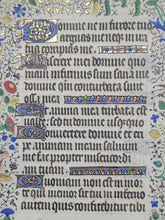 Domine ne in furore tuo
arguas me neq in ira
tua corripias me.
Miserere mei domine quo
niam infirmus sum sana me
domine qm conturbata sunt
ossa mea
Et anima mea turbata est
sed tu domine
Convertere domine et eri
pe animam meam salvum
me fac propter misericordi
am tuam.
Quoniam non est in mor
te qui memor sit tui in inferno
autem quis confitebitur tibi